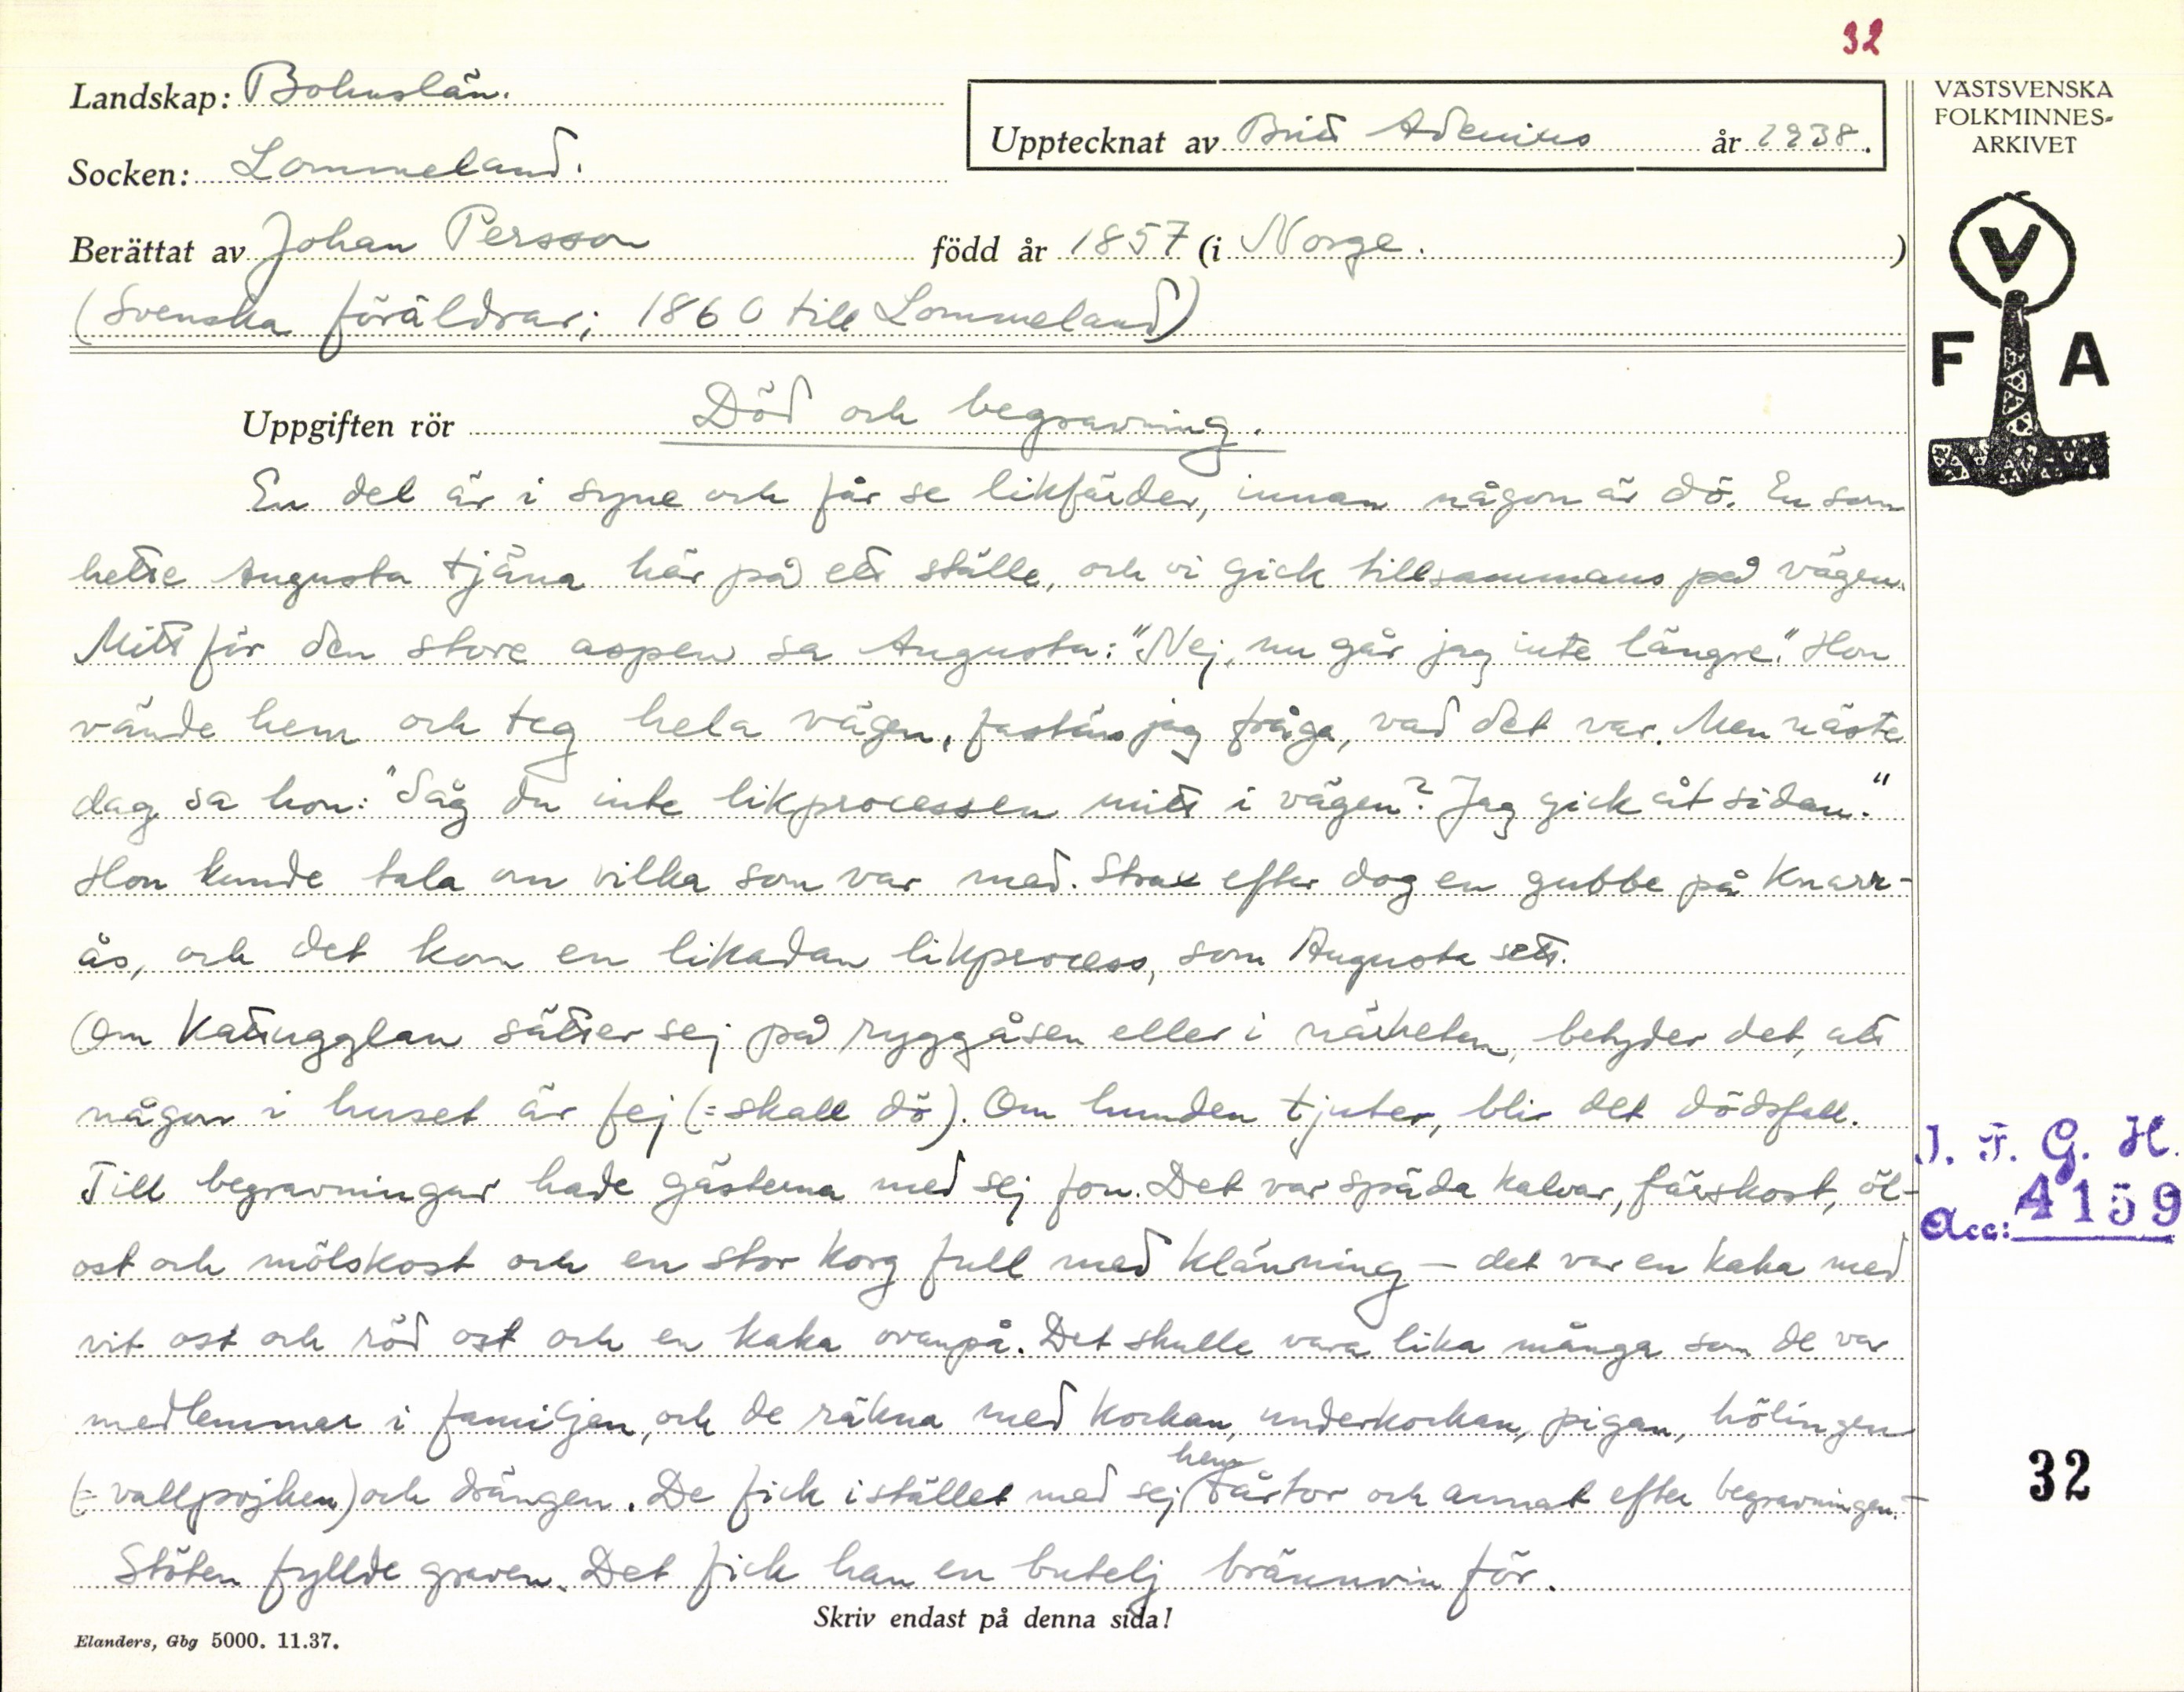 32
Landskap: Bohuslän.
Upptecknat av Brita Adenius år 1938.
Socken: Lommeland.
Berättat av Johan Persson född år 1857 (i Norge.)
(Svenska föräldrar; 1860 till Lommeland)
VÄSTSVENSKA
FOLKMINNES-
ARKIVET
V
F A
Uppgiften rör Död och begravning.
En del är i syne och får se likfärder, innan någon är dö. En som
hette Augusta tjäna här på ett ställe, och vi gick tillsammans på vägen.
Mitt för den store aspen sa Augusta: "Nej, nu går jag inte längre." Hon
vände hem och teg hela vägen, fastän jag fråga, vad det var. Men näste
dag sa hon: "Såg du inte likprocessen mitt i vägen? Jag gick åt sidan."
Hon kunde tala om vilka som var med. Strax efter dog en gubbe på Knarr-
ås, och det kom en likadan likprocess, som Augusta sett.
Om Kattugglan sätter sej på ryggåsen eller i närheten, betyder det, att
någon i huset är fej (=skall dö). Om hunden tjuter, blir det dödsfall.
Till begravningar hade gästerna med sej fon. Det var späda kalvar, färskost, öl-
ost och mölskost och en stor korg full med klänning – det var en kaka med
vit ost och röd ost och en kaka ovanpå. Det skulle vara lika många som de var
medlemmar i familjen, och de räkna med kockan, underkockan, pigan, hölingen
(=vallpojken) och drängen. De fick istället med sej hem tårtor och annat efter begravningen.
Stöten fyllde graven. Det fick han en butelj brännvin för.
Skriv endast på denna sida!
Elanders, Gbg 5000. 11.37.
I. F. G. H.
Acc: 4159
32